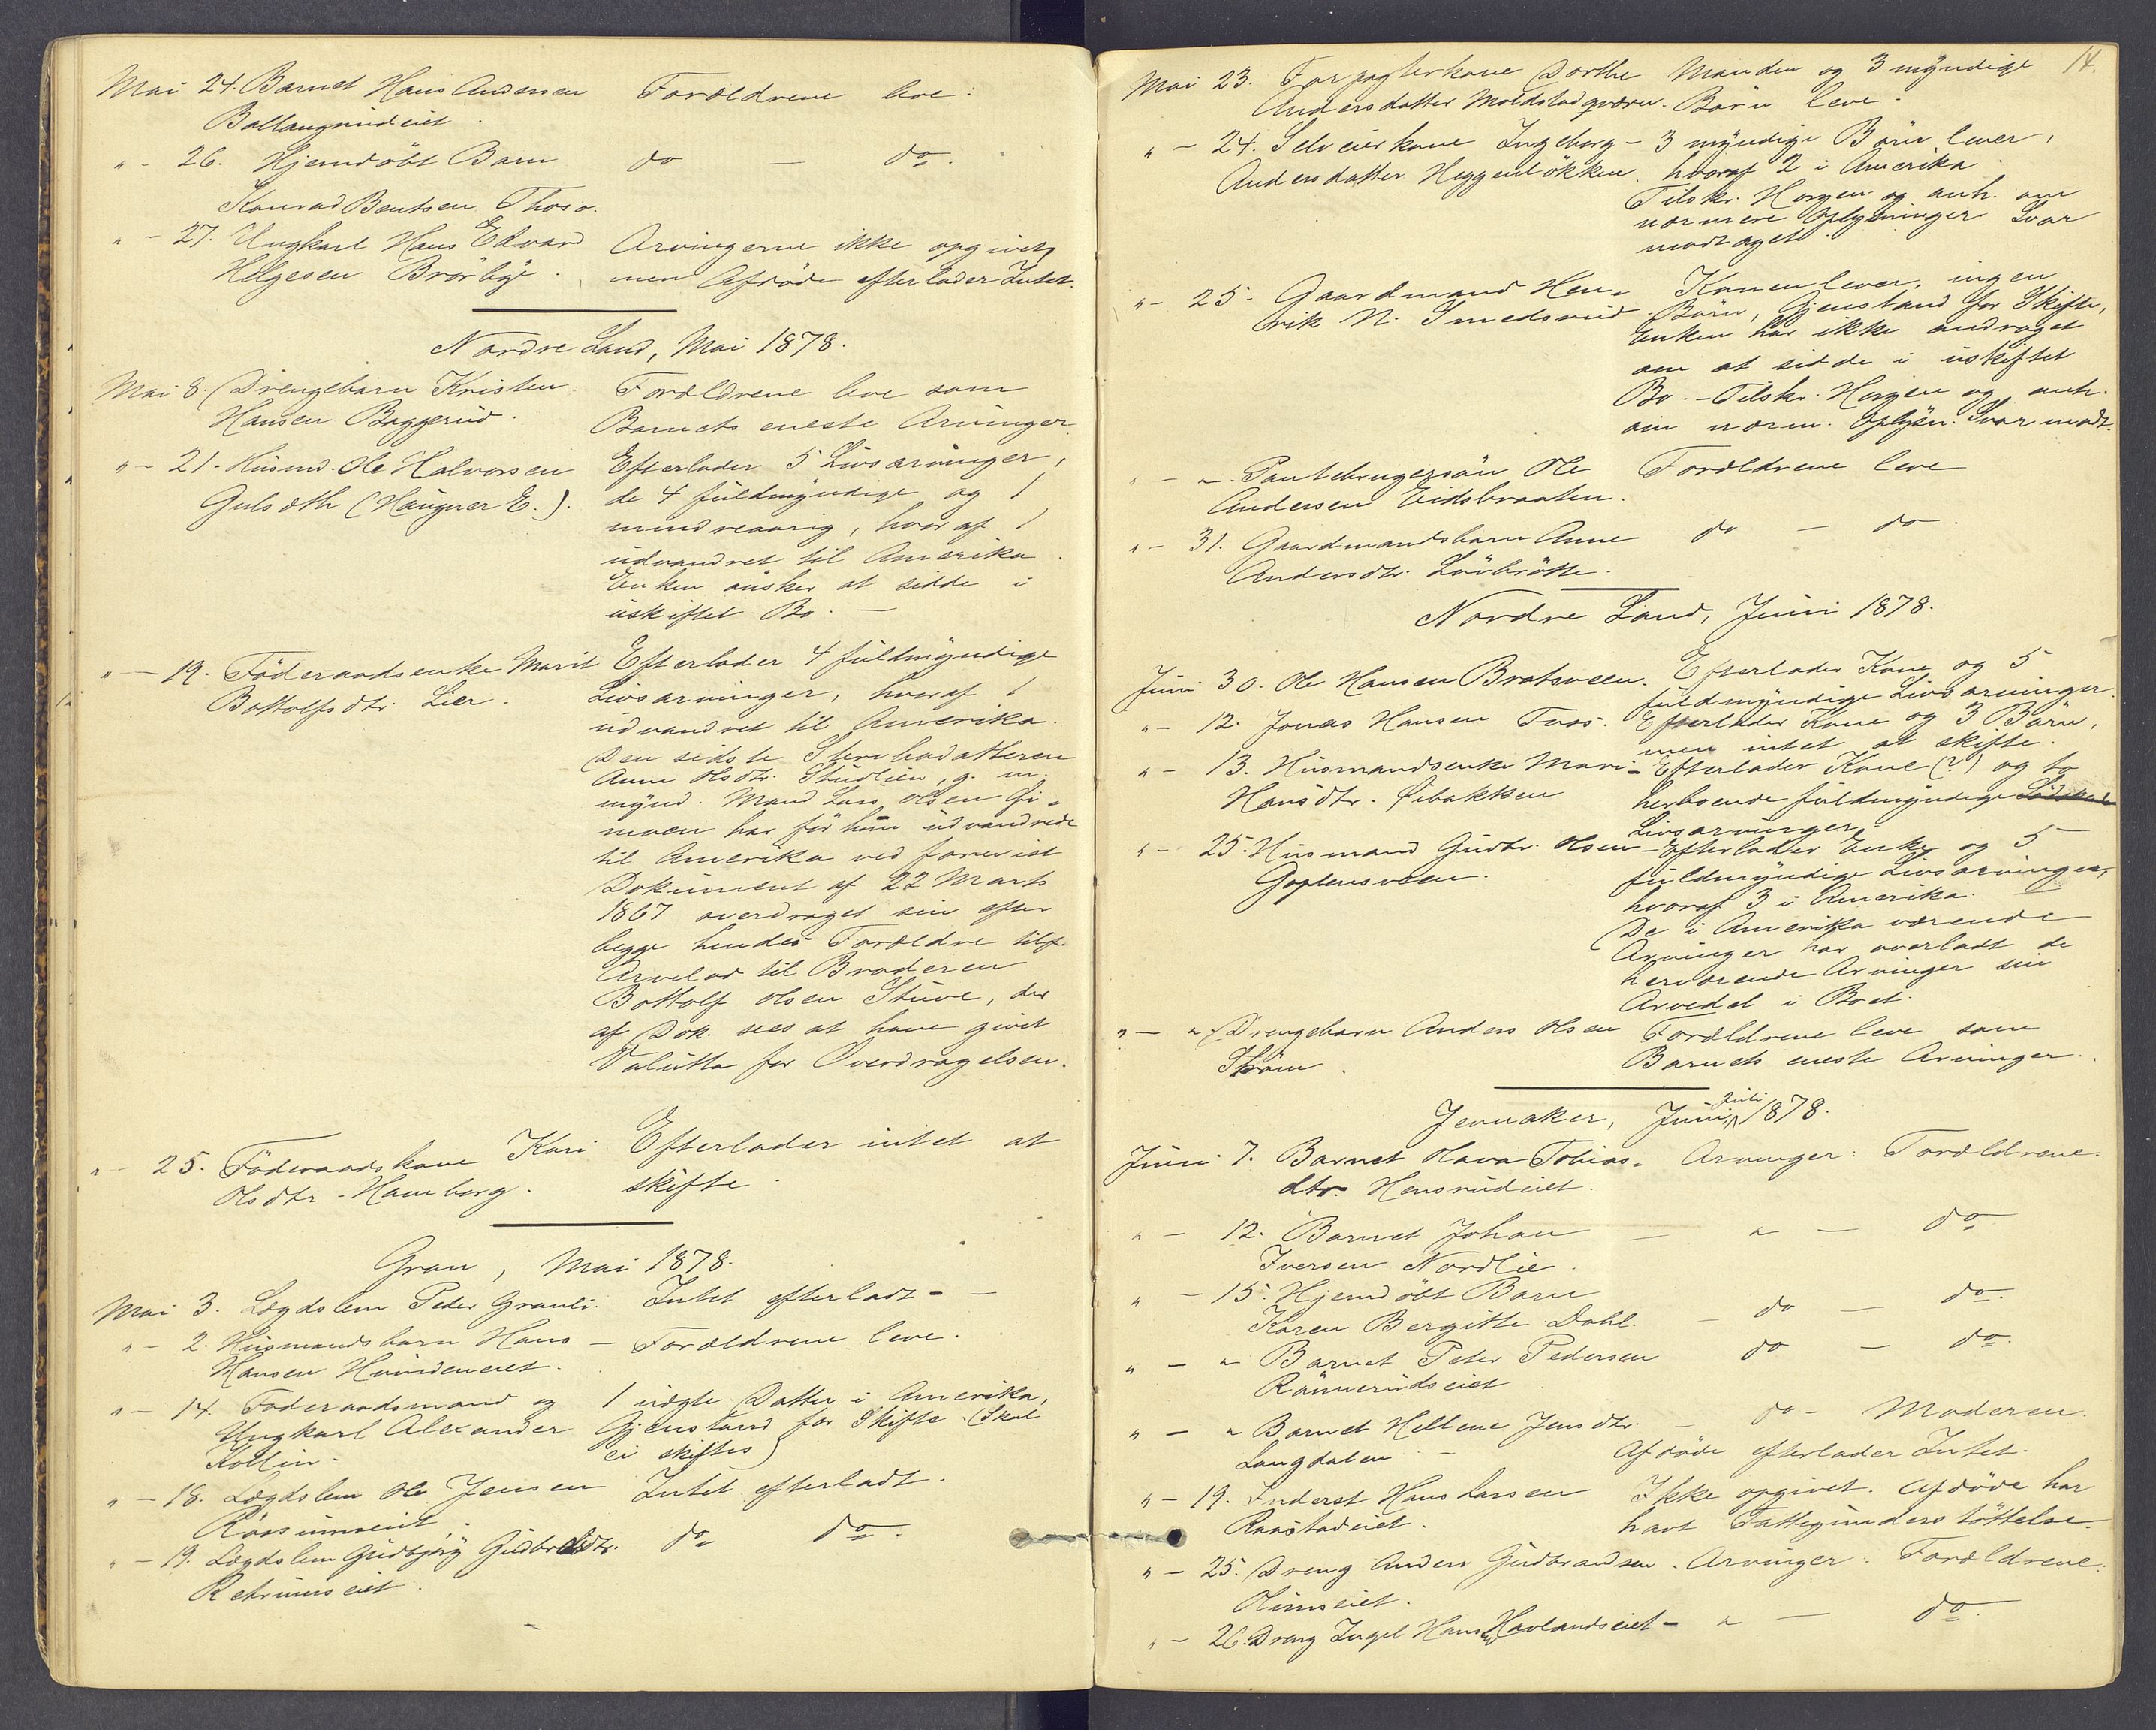 Mai 24. Barnet Hans Andersen Forældrene leve.
Ballangrudeiet.
" - 26. Hjemdöbt Barn do — do.
Konrad Bentsen Thoso.
" - 27. Ungkarl Hans Edvard Arvingerne ikke opgivet,
Helgesen Brørbye. men Afdöde efterlader Intet.
Nordre Land, Mai 1878.
Mai 8. Drengebarn Kristen Forældrene leve som
Hansen Baggerud. Barnets eneste Arvinger.
" - 21. Husmd. Ole Halvorsen Efterlader 5 Livsarvinger,
(Haugner E.). de 4 fuldmyndige og 1
mindreaarig, hvoraf 1
udvandret til Amerika.
Enken önsker at sidde i
uskiftet Bo. —
" — 19. Föderaadsenke Marit Efterlader 4 fuldmyndige
Bottolfsdtr. Lier. Livsarvinger, hvoraf 1
udvandret til Amerika.
Den sidste
Anne Olsdtr. g. m.
mynd. Mand Lars Olsen
moen har för hun udvandrede
til Amerika ved forevist
Dokument af 22 Marts
1867 overdraget sin efter
begge hendes Forældre tilf.
Arvelod til Broderen
Bottolf Olsen Stuve, der
af Dok. sees at have givet
Valutta for Overdragelsen.
" - 25. Föderaadskone Kari Efterlader intet at
Olsdtr. Hamborg. skifte.
Gran, Mai 1878.
Mai 3. Lægdslem Peder Granli. Intet efterladt - —
" - 2. Husmandsbarn Hans — Forældrene leve.
Hansen Hvindeneiet.
" - 14. Föderaadsmand og 1 uægte Datter i Amerika,
Ungkarl Alexander Gjenstand for Skifte. (Skal
Kollin. ei skiftes)
" - 18. Lægdslem Ole Jensen Intet efterladt.
Raasumseiet.
" - 19. Lægdslem Gudbjörg Gudbrdsdtr. do do.
Retrumseiet.
14.
Mai 23. Forpagterkone Dorthe Manden og 3 myndige
Andersdatter Moldstadqværn. Börn leve.
" - 24. Selveierkone Ingeborg - 3 myndige Börn lever,
Andersdatter Heggenlökken. hvoraf 2 i Amerika
Tilskr. Horgen og anh. om
nærmere Oplysninger. Svar
modtaget.
" - 25. Gaardmand Hen- Konen lever, ingen
rik N. Smedsrud. Börn, Gjenstand for Skifte,
Enken har ikke andraget
om at sidde i uskiftet
Bo. - Tilskr. Horgen og anh.
om nærm. Oplysn. Svar modt.
" - " Pantebrugersön Ole Forældrene leve
Andersen Eidsbraaten.
" - 31. Gaardmandsbarn Anne do — do.
Andersdtr. Lövbråtte.
Nordre Land, Juni 1878.
Juni 30. Ole Hansen Bratsveen. Efterlader Kone og 5
fuldmyndige Livsarvinger.
" - 12. Jonas Hansen Taas. Efterlader Kone og 3 Börn,
men intet at skifte.
" - 13. Husmandsenke Mari - Efterlader Kone (?) og to
Hansdtr. Öibakken herboende fuldmyndige
Livsarvinger.
" - 25. Husmand Gudbr. Olsen - Efterlader Enke og 5
Goplensveen. fuldmyndige Livsarvinger,
hvoraf 3 i Amerika.
De i Amerika værende
Arvinger har overladt de
herværende Arvinger sin
Arvedel i Boet.
" — " Drengebarn Anders Olsen Forældrene leve som
Ström. Barnets eneste Arvinger.
Jevnaker, Juni, Juli 1878.
Juni 7. Barnet Olava Tobias- Arvinger: Forældrene.
dtr. Hensrudeiet.
" - 12. Barnet Johan — " — do
Iversen Nordlie.
" - 15. Hjemdöbt Barn
Karen Bergitte Dahl. — do — do.
" — " Barnet Peter Pedersen do — do.
Rönnerudseiet
" — " Barnet Hellene Jensdtr. — do - Moderen.
Langdalen — Afdöde efterlader Intet.
" - 19. Inderst Hans Larsen Ikke opgivet. Afdöde har
Raastadeiet. havt Fattigunderstöttelse.
" - 25. Dreng Anders Gudbrandsen. Arvinger: Forældrene.
Olimseiet.
" - 26. Dreng Ingel Hans. Havlandseiet - " — do.